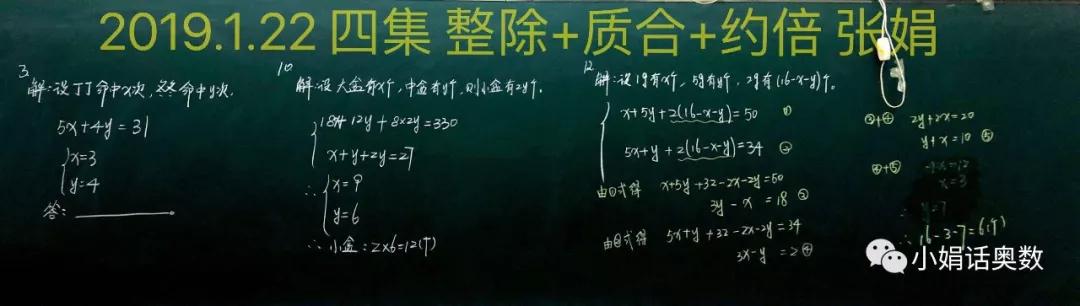 2019.1.22 四集 整除+质合+约倍 张娟
3.
解:设丁丁命中x次,冬冬命中y次.
5x+4y=31
x=3
y=4
答:
10.
解:设大盒有x个,中盒有y个,则小盒有2y个.
18x+12y+8×2y=330
x+y+2y=27
∴ x=9
y=6
∴小盒:2×6=12(个)
12.
解:设1号有x个,5号有y个,2号有(16-x-y)个.
x+5y+2(16-x-y)=50 ①
5x+y+2(16-x-y)=34 ②
由①式得 x+5y+32-2x-2y=50
3y-x=18 ③
由②式得 5x+y+32-2x-2y=34
3x-y=2 ④
③+④ 2y+2x=20
y+x=10 ⑤
④+⑤ 4x=12
x=3
∴ y=7
∴ 16-3-7=6(个)
小娟话奥数